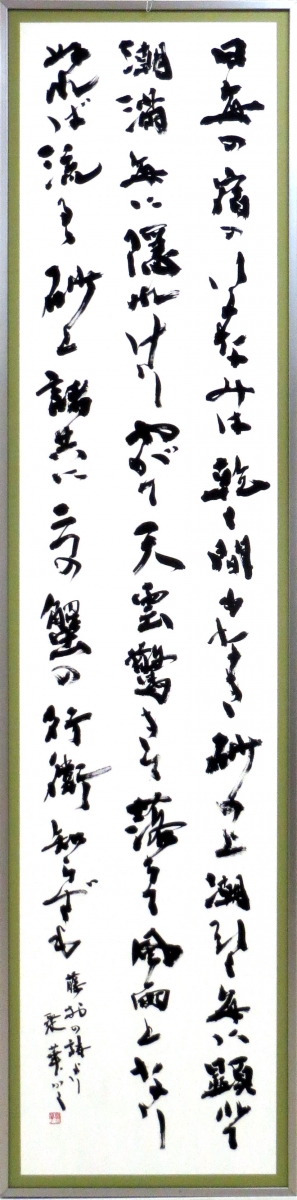 日毎の宿のいとなみは乾く間もなき砂の上潮引く毎に顕れて
潮満毎に隠れけりやがて天雲驚きて落ちて風雨となり
ぬれば流るる砂と諸共に二つの蟹の行衛知らずも
藤村の詩より